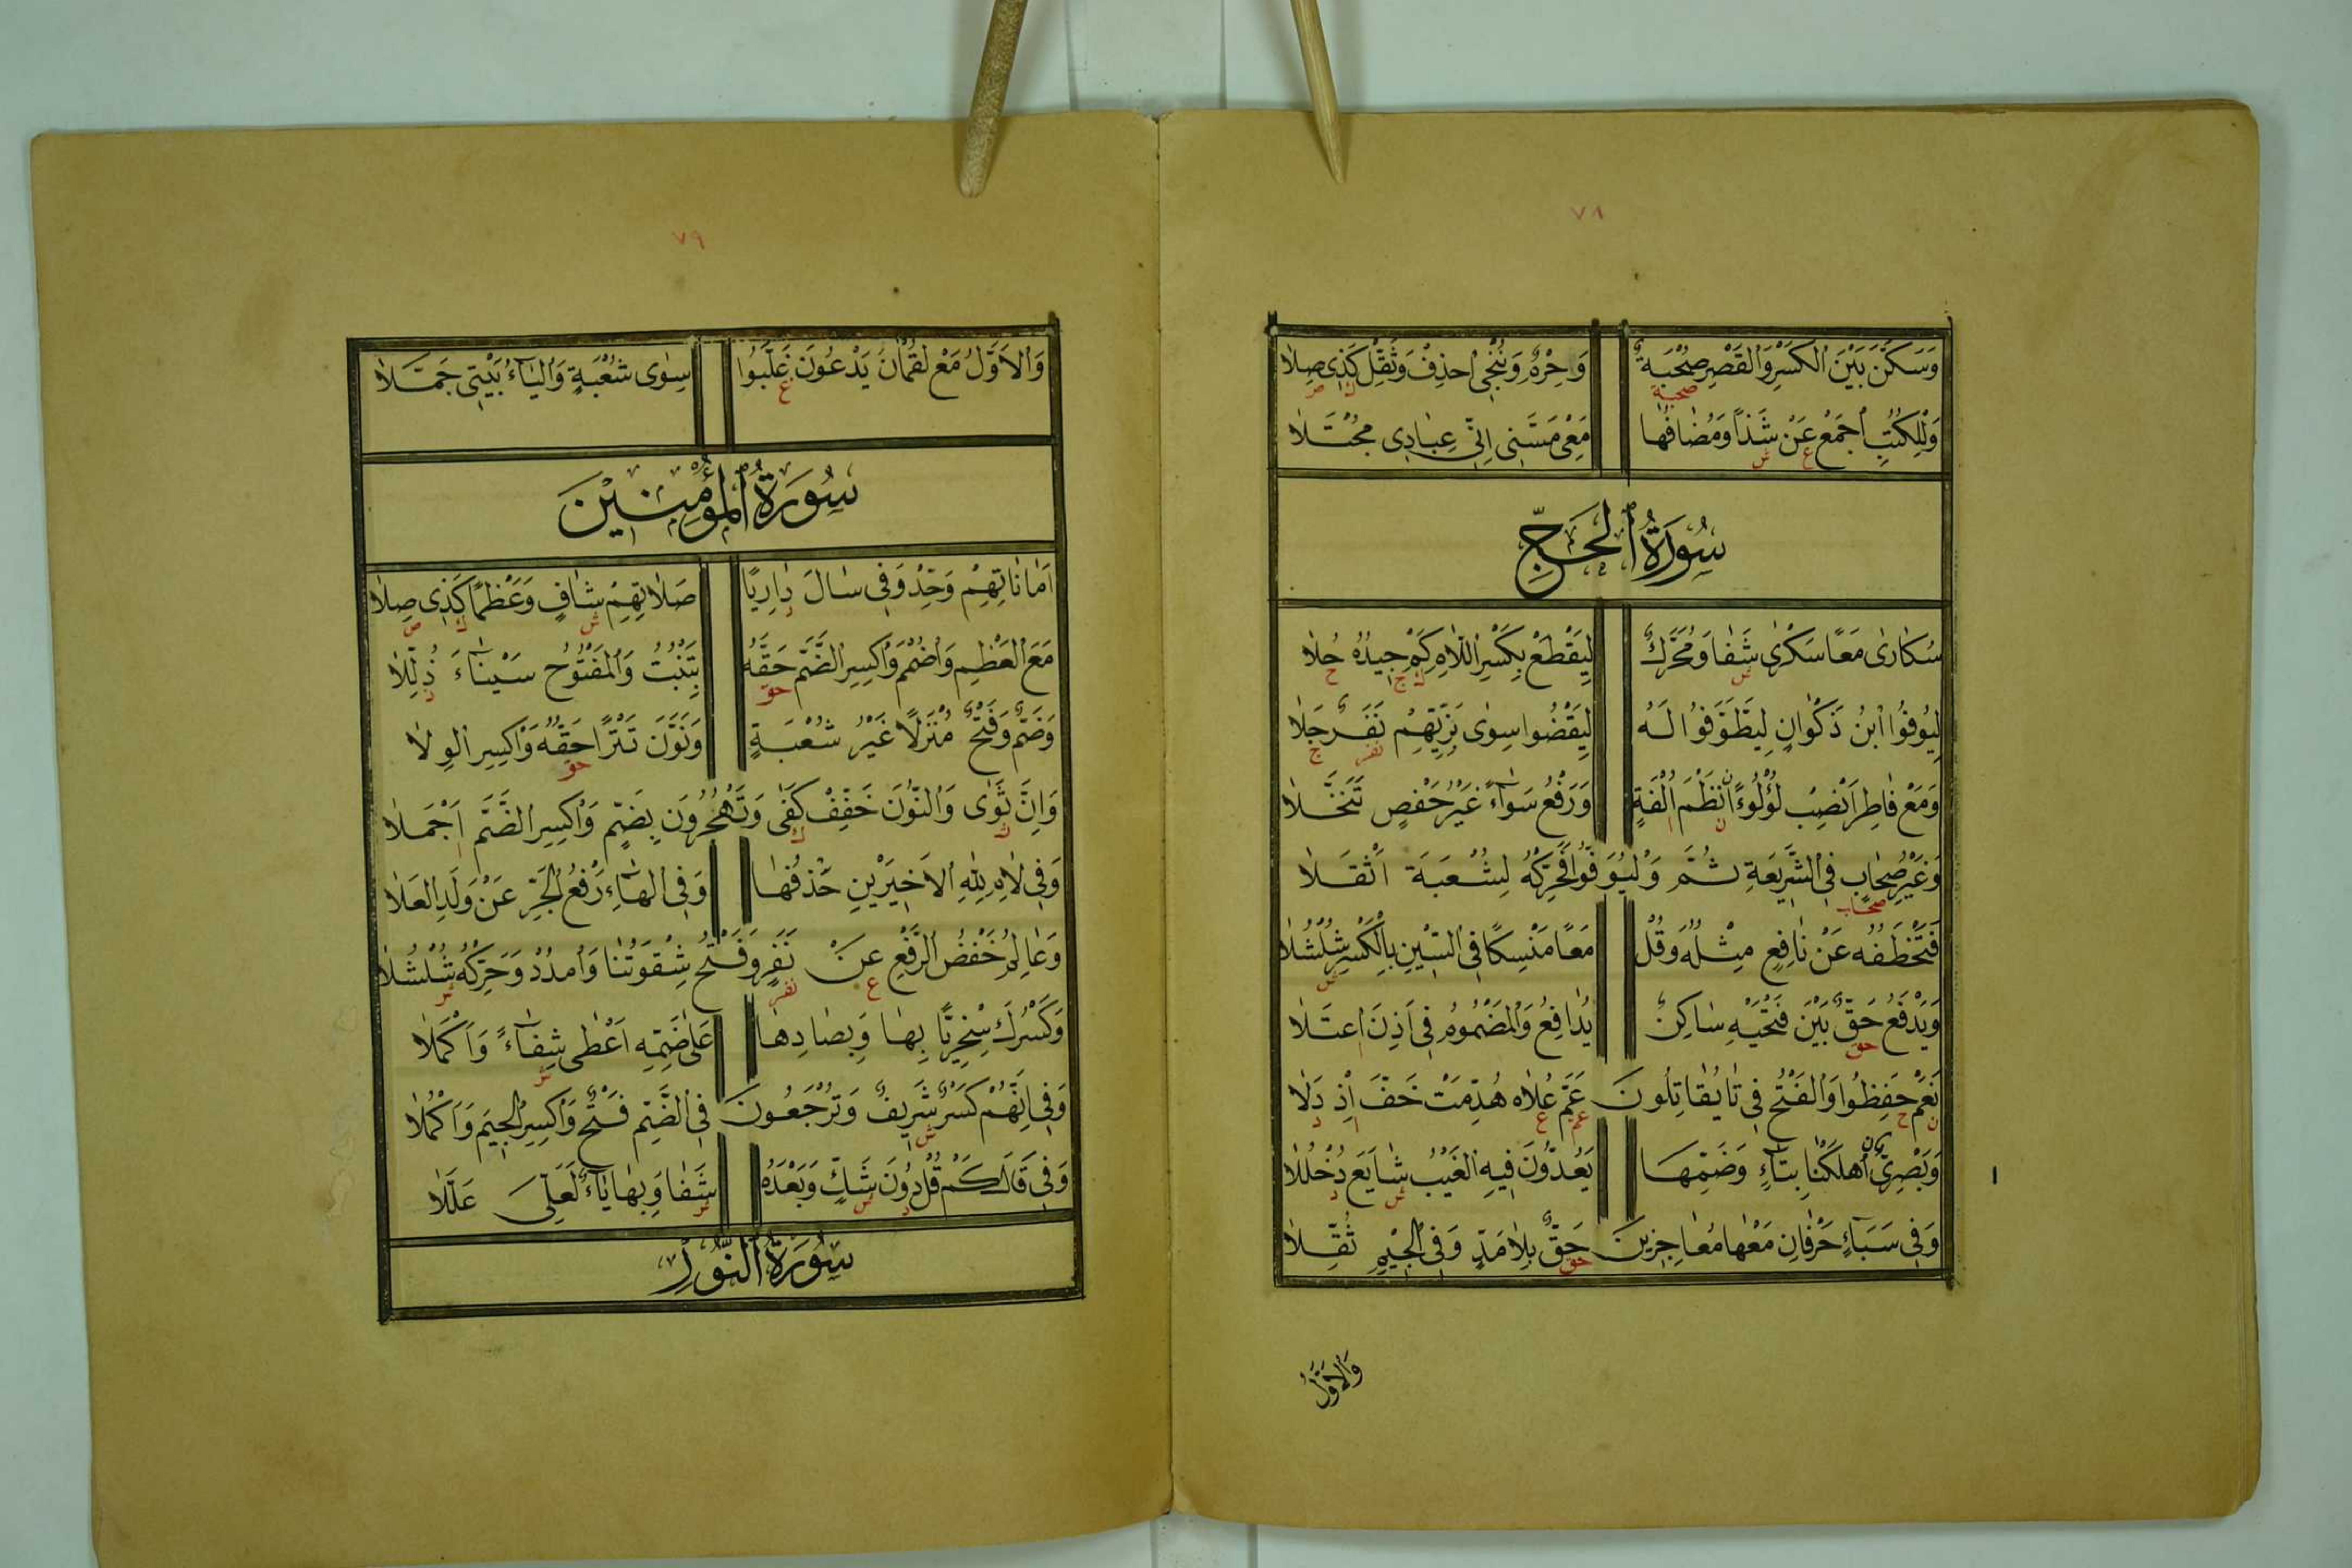 ٧٨
وَسَكَّنَ بَيْنَ الْكَسْرِ وَالْقَصْرِ صُحْبَةٌ وَحِرْمٌ وَنُنْجِى احْذِفْ وَثَقِّلْ كَذِى صِلَا
صحبة ك ص
وَلِلْكُتُبِ اجْمَعْ عَنْ شَذًا وَمُضَافُهَا مَعِى مَسَّنِى اِنِّى عِبَادِى مُجْتَلَا
ع ش
سُورَةُ الْحَجِّ
سُكَارٰى مَعًا سَكْرٰى شَفَا وَمُحَرَّكٌ لِيَقْطَعْ بِكَسْرِ اللَّامِ كَمْ جِيدُهُ حَلَا
ش ك ج ح
لِيُوفُوا ابْنُ ذَكْوَانٍ لِيَطَّوَّفُوا لَهُ لِيَقْضُوا سِوٰى بَزِّيِّهِمْ نَفَرٌ جَلَا
نفر ج
وَمَعْ فَاطِرَ انْصِبْ لُؤْلُؤًا نَظْمَ اُلْفَةٍ وَرَفْعُ سَوَآءً غَيْرُ حَفْصٍ تَنَخَّلَا
ن ا
وَغَيْرُ صِحَابٍ فِى الشَّرِيعَةِ ثُمَّ وَلْيُوَفُّوا فَحَرِّكْهُ لِشُعْبَةَ اَثْقَلَا
صحاب
فَتَخْطَفُهُ عَنْ نَافِعٍ مِثْلُهُ وَقُلْ مَعًا مَنْسِكًا فِى السِّينِ بِالْكَسْرِ شُلْشُلَا
ش
وَيَدْفَعُ حَقٌّ بَيْنَ فَتْحَيْهِ سَاكِنٌ يُدَافِعُ وَالْمَضْمُومُ فِى اَذِنَ اعْتَلَا
حق ا
نَعَمْ حَفِظُوا وَالْفَتْحُ فِى تَا يُقَاتِلُونَ عَمَّ عُلَاهُ هُدِّمَتْ خَفَّ اِذْ دَلَا
ن ح عم ع ا د
وَبَصْرِىٌّ اَهْلَكْنَا بِتَآءٍ وَضَمِّهَا يَعُدُّونَ فِيهِ الْغَيْبُ شَايَعَ دُخْلُلَا
ش د
وَفِى سَبَاءٍ حَرْفَانِ مَعْهَا مُعَاجِزِينَ حَقٌّ بِلَا مَدٍّ وَفِى الْجِيمِ ثُقِّلَا
حق
وَالْاَوَّلُ
٧٩
وَالْاَوَّلُ مَعْ لُقْمَانَ يَدْعُونَ غَلَّبُوا سِوٰى شُعْبَةٍ وَالْيَآءُ بَيْتِى جَمَّلَا
ع
سُورَةُ الْمُؤْمِنِيْنَ
اَمَانَاتِهِمْ وَحِّدْ وَفِى سَالَ دَارِيًا صَلَاتِهِمْ شَافٍ وَعَظْمًا كَذِى صِلَا
د ش ك ص
مَعَ الْعَظْمِ وَاضْمُمْ وَاكْسِرِ الضَّمَّ حَقُّهُ بِتَنْبُتُ وَالْمَفْتُوحُ سَيْنَآءَ ذُلِّلَا
حق ذ
وَضَمٌّ وَفَتْحٌ مُنْزَلًا غَيْرُ شُعْبَةٍ وَنَوَّنَ تَتْرًا حَقُّهُ وَاكْسِرِ الْوِلَا
حق
وَاِنَّ ثَوٰى وَالنُّونَ خَفِّفْ كَفٰى وَتَهْجُرُونَ بِضَمٍّ وَاكْسِرِ الضَّمَّ اَجْمَلَا
ث ك ا
وَفِى لَامِ لِلّٰهِ الْاَخِيرَيْنِ حَذْفُهَا وَفِى الْهَآءِ رَفْعُ الْجَرِّ عَنْ وَلَدِ الْعَلَا
وَعَالِمُ خَفْضُ الرَّفْعِ عَنْ نَفَرٍ وَفَتْحُ شِقْوَتُنَا وَامْدُدْ وَحَرِّكْهُ شُلْشُلَا
ع نفر ش
وَكَسْرُكَ سِخْرِيًّا بِهَا وَبِصَادِهَا عَلٰى ضَمِّهِ اَعْطٰى شِفَآءً وَاَكْمَلَا
ش
وَفِى اِنَّهُمْ كَسْرٌ شَرِيفٌ وَتُرْجَعُونَ فِى الضَّمِّ فَتْحٌ وَاكْسِرِ الْجِيمَ وَاكْمُلَا
ش
وَفِى قَالَ كَمْ قُلْ دُونَ شَكٍّ وَبَعْدَهُ شَفَا وَبِهَا يَآءٌ لَعَلِّىَ عَلَّلَا
د ش ش
سُورَةُ النُّوْرِ